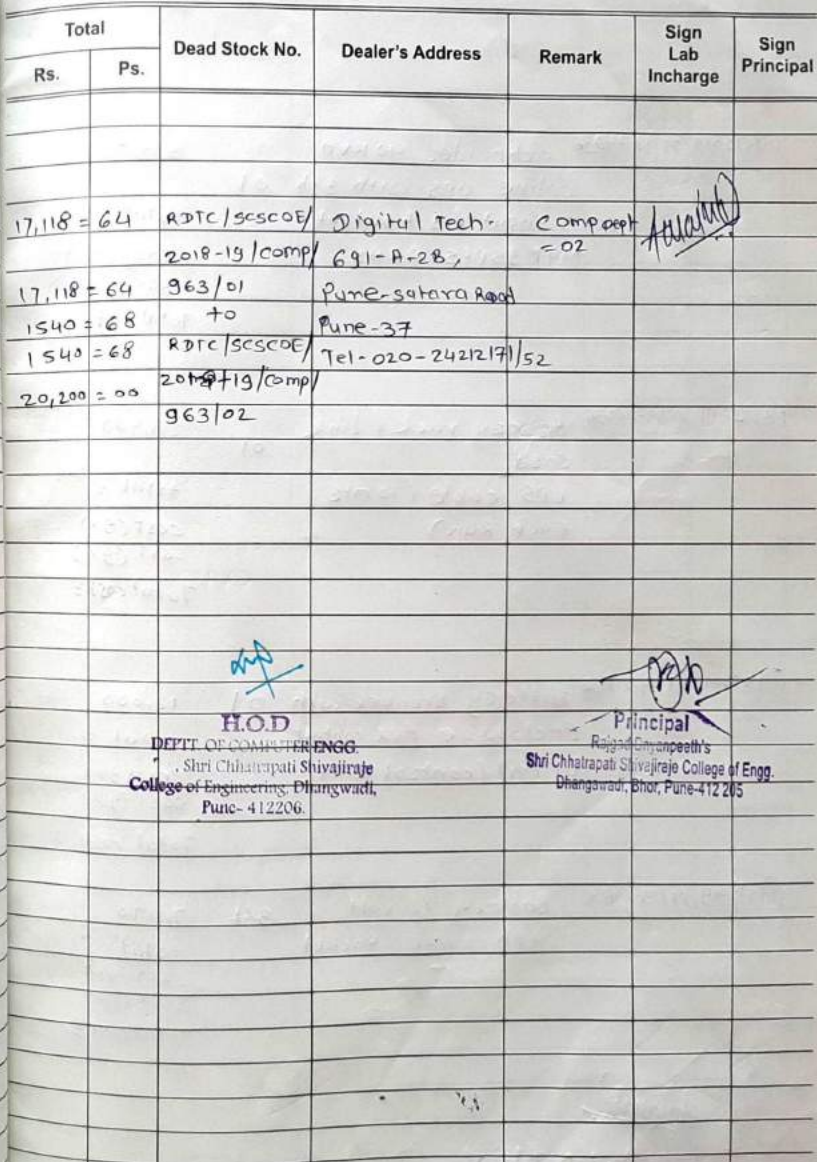 Total
Dead Stock No.
Dealer's Address
Remark
Sign
Lab
Incharge
Sign
Principal
Rs. Ps.
17,118 = 64 RDTC/SCSCOE/ Digital Tech. Comp Dept
2018-19/comp/ 691-A-2B, = 02
17,118 = 64 963/01 Pune-satara Road
1540 = 68 to Pune-37
1540 = 68 RDTC/SCSCOE/ Tel-020-24212171/52
20,200 = 00 19/comp/
963/02
H.O.D
DEPTT. OF COMPUTER ENGG.
Shri Chhatrapati Shivajiraje
College of Engineering, Dhangwadi,
Pune- 412206.
Principal
Rajgad Dnyanpeeth's
Shri Chhatrapati Shivajiraje College of Engg.
Dhangawadi, Bhor, Pune-412 205